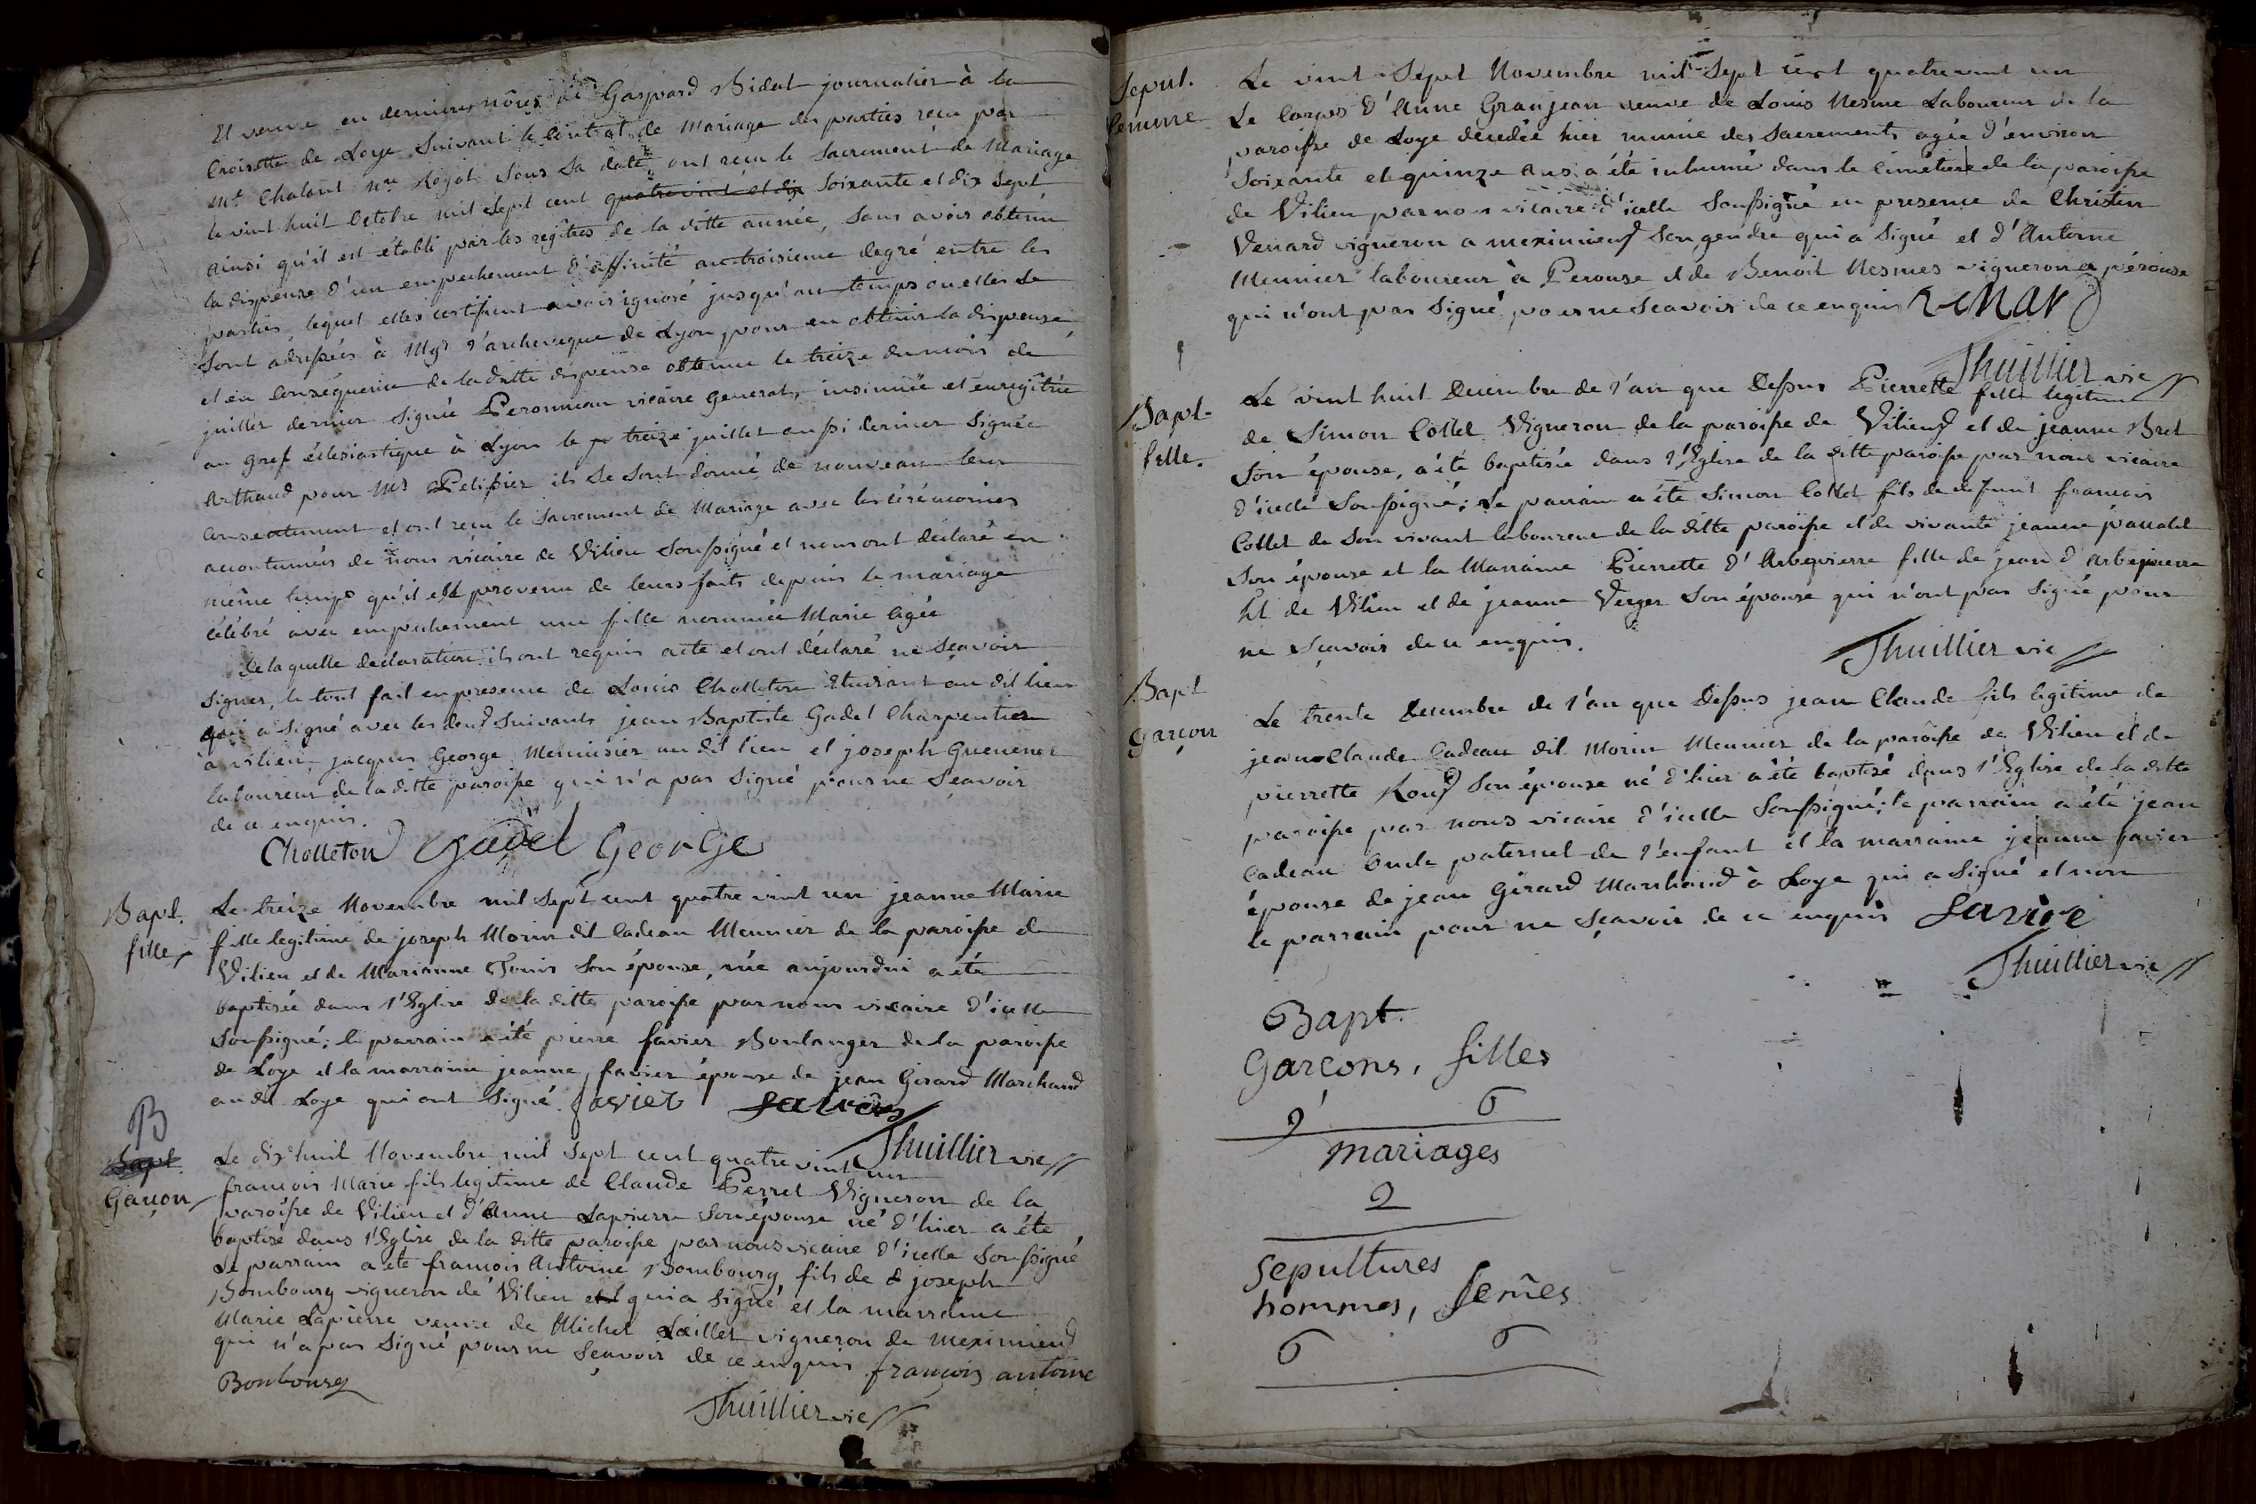 Et veuve en dernieres nôces de Gaspard Bidat journalier à la
Croisette de Loye suivant le Contrat de Mariage des parties reçu par
Mt Chatard nre Royal sous sa date ont reçu le sacrement de Mariage
le vint huit octobre mil sept cent quatrevint et dix soixante et dix sept
ainsi qu'il est établi par les regîtres de la ditte année, sans avoir obtenu
la dispense d'un empechement d'affinité au troisieme degré entre les
parties, lequel elles certifient avoir ignoré jusqu'au temps ou elles se
sont adressées à Mgr l'archeveque de Lyon pour en obtenir la dispense
et en consequence de la ditte dispense obtenue le treize du mois de
juillet dernier signée Peronneau vicaire general, insinuée et enregîtrée
au gref éclésiastique à Lyon le treize juillet aussi dernier signée
Arthaud pour Mr Pelissier ils se sont donné de nouveau leur
consentement et ont reçu le sacrement de Mariage avec les cérémonies
accoutumées de nous vicaire de Vilieu soussigné et nous ont déclaré en
même temps qu'il est provenu de leurs faits depuis le mariage
célébré avec empechement une fille nommée Marie agée
de laquelle declaration ils ont requis acte et ont déclaré ne sçavoir
signer, le tout fait en presence de Louis Cholleton Etudiant au dit lieu
qui a signé avec les deux suivants jean Baptiste Gadel Charpentier
à vilieu, jacques George Menuisier au dit lieu et joseph Guenener
laboureur de la ditte paroisse qui n'a pas signé pour ne sçavoir
de ce enquis.
Cholleton Gadel George
Bapt. fille
Le treize Novembre mil sept cent quatre vint un jeanne Marie
fille legitime de joseph Morin dit Cadeau Meunier de la paroisse de
Vilieu et de Marianne Tonis son épouse, née aujourdui a été
baptisée dans l'Eglise de la ditte paroisse par nous vicaire d'icelle
soussigné; le parrain a été pierre favier Boulanger de la paroisse
de Loye et la marraine jeanne favier épouse de jean Girard Marchand
au dit Loye qui ont signé favier
Thuillier vic
B
Bapt.
Garçon
Le dix huit Novembre mil sept cent quatre vint un
françois Marie fils legitime de Claude Perret Vigneron de la
paroisse de Vilieu et d'Anne Lapierre son épouse né d'hier a été
baptisé dans l'Eglise de la ditte paroisse par nous vicaire d'icelle soussigné
Le parrain a été françois Antoine Bombourg fils de joseph
Bombourg vigneron de Vilieu qui a signé et la marraine
Marie Lapierre veuve de Michel Lœillet vigneron de Meximieux
qui n'a pas signé pour ne sçavoir de ce enquis françois antoine
Bonbourg
Thuillier vic
Sepul.
femme
Le vint sept Novembre mil sept cent quatrevint un
Le Corps d'Anne Granjean veuve de Louis Nesme Laboureur de la
paroisse de Loye decedée hier munie des sacrements agée d'environ
soixante et quinze ans a été inhumé dans le Cimétiere de la paroisse
de Vilieu par nous vicaire d'icelle soussigné en presence de Christin
Venard vigneron a meximieux son gendre qui a signé et d'Antoine
Meunier laboureur à Perouse et de Benoit Nesmes vigneron a pérouse
qui n'ont pas signé pour ne scavoir de ce enquis Venard
Thuillier vic
Bapt.
fille.
Le vint huit Decembre de l'an que Dessus Pierrette fille legitime
de Simon Collet Vigneron de la paroisse de Vilieux et de jeanne Bret
son épouse, a été baptisée dans l'Eglise de la ditte paroisse par nous vicaire
d'icelle soussigné; Le parrain a été Simon Collet fils de defunt francois
Collet de son vivant laboureur de la ditte paroisse et de vivante jeanne
son épouse et la Marraine Pierrette d'Arbepierre fille de jean d'Arbepierre
de Vilieu et de jeanne Verger son épouse qui n'ont pas signé pour
ne sçavoir de ce enquis.
Thuillier vic
Bapt
garçon
Le trente Decembre de l'an que Dessus jean Claude fils légitime de
jean Claude Cadeau dit Morin Meunier de la paroisse de Vilieu et de
pierrette Roux son épouse né d'hier a été baptisé dans l'Eglise de la ditte
paroisse par nous vicaire d'icelle soussigné; le parrain a été jean
Cadeau Oncle paternel de l'enfant et la marraine jeanne favier
épouse de jean Girard Marchand à Loye qui a signé et non
le parrain pour ne sçavoir de ce enquis
Thuillier vic
Bapt.
Garçons, filles
9 6
mariages
2
Sepultures
hommes, femes
6 6